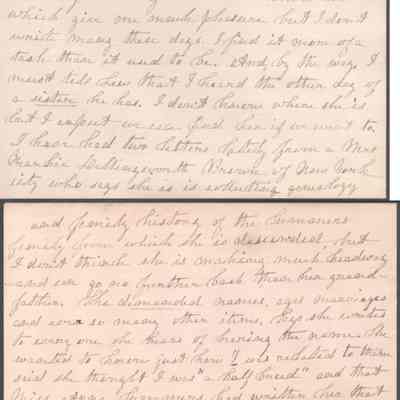 which give me much pleasure but I don't
write many these days. I find it more of a
task than it used to be. And by the way I
must tell how that I heard the other day of
a sister he has. I don't know where she is
but I expect we can find her if we want to
I have had two letters lately from a Mrs
Brown of New York
city who says she is is collecting genealogy
and family history of the
family from which she is descended, but
I don't think she is making much headway
and can go no further back than her grand-
father. She demanded names, ages marriages
and ever so many other items. Says she writes
to every one she hears of having the name. She
wanted to know just how I was related to them
said she thought I was "a half breed" and that
Miss had written her that